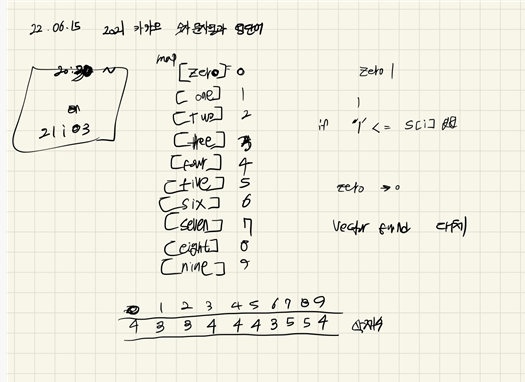 22.06.15 2021 카카오 숫자 문자열과 영단어
21:03
map
[zero] = 0
[one] 1
[two] 2
[three] 3
[four] 4
[five] 5
[six] 6
[seven] 7
[eight] 8
[nine] 9
zero 1
1
if '1' <= s[i]
zero → 0
vector find
0 1 2 3 4 5 6 7 8 9
4 3 3 4 4 4 3 5 5 4